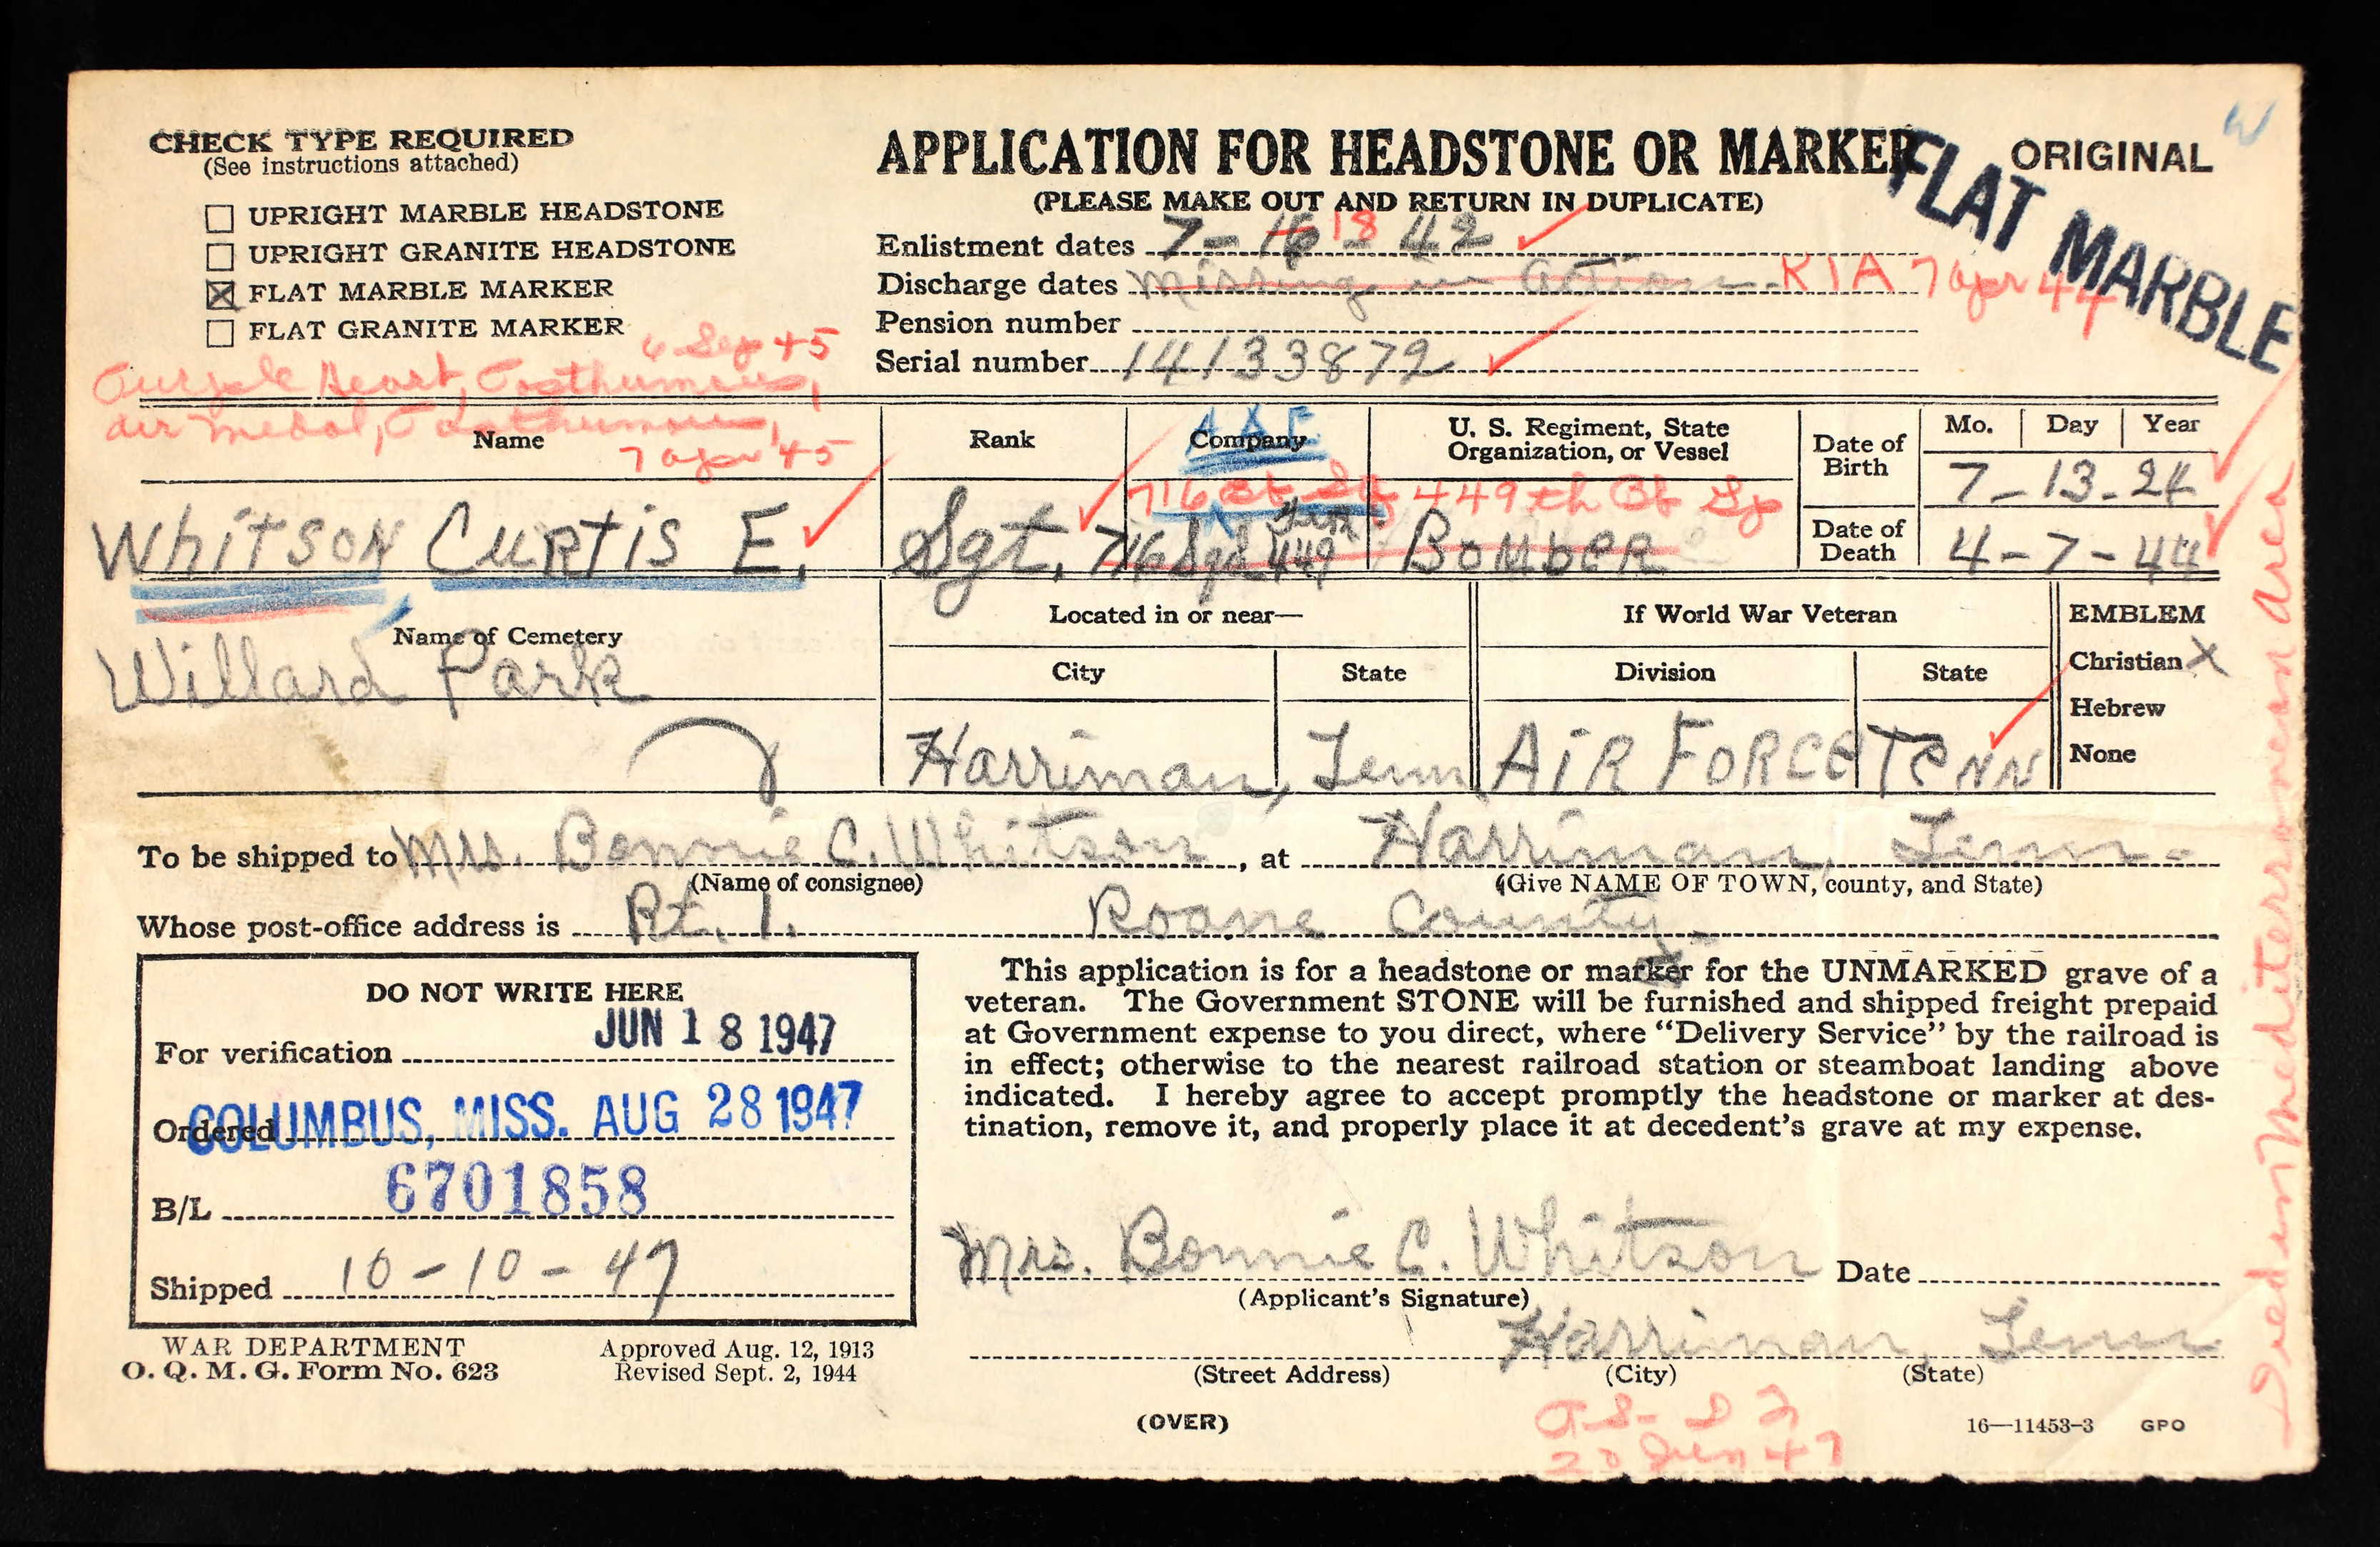 CHECK TYPE REQUIRED
(See instructions attached)
☐ UPRIGHT MARBLE HEADSTONE
☐ UPRIGHT GRANITE HEADSTONE
☒ FLAT MARBLE MARKER
☐ FLAT GRANITE MARKER
6 Sep 45
Purple Heart, Posthumous,
Air Medal, Posthumous,
7 Apr 45
APPLICATION FOR HEADSTONE OR MARKER
ORIGINAL
W
FLAT MARBLE
(PLEASE MAKE OUT AND RETURN IN DUPLICATE)
Enlistment dates 7-16 18-42
Discharge dates Missing in Action KIA 7 Apr 44
Pension number
Serial number 14133872
Name
Rank
Company
A.A.F.
U. S. Regiment, State
Organization, or Vessel
Date of
Birth
Mo. Day Year
7-13-24
716 Bb Sq 449th Bb Gp
Whitson Curtis E.
Sgt. 716 Sqd 449 Bomber
Date of
Death
4-7-44
Name of Cemetery
Willard Park
Located in or near—
City State
Harriman, Tenn
If World War Veteran
Division State
Air Force Tenn
EMBLEM
Christian X
Hebrew
None
To be shipped to Mrs. Bonnie C. Whitson, at Harriman, Tenn.
(Name of consignee) (Give NAME OF TOWN, county, and State)
Whose post-office address is Rt. 1. Roane County
DO NOT WRITE HERE
For verification JUN 18 1947
Ordered COLUMBUS, MISS. AUG 28 1947
B/L 6701858
Shipped 10-10-47
WAR DEPARTMENT
O. Q. M. G. Form No. 623
Approved Aug. 12, 1913
Revised Sept. 2, 1944
This application is for a headstone or marker for the UNMARKED grave of a
veteran. The Government STONE will be furnished and shipped freight prepaid
at Government expense to you direct, where “Delivery Service” by the railroad is
in effect; otherwise to the nearest railroad station or steamboat landing above
indicated. I hereby agree to accept promptly the headstone or marker at des-
tination, remove it, and properly place it at decedent’s grave at my expense.
Mrs. Bonnie C. Whitson Date
(Applicant’s Signature)
Harriman, Tenn
(Street Address) (City) (State)
(OVER)
20 Jun 47
16—11453-3 GPO
Died in Mediterranean Area